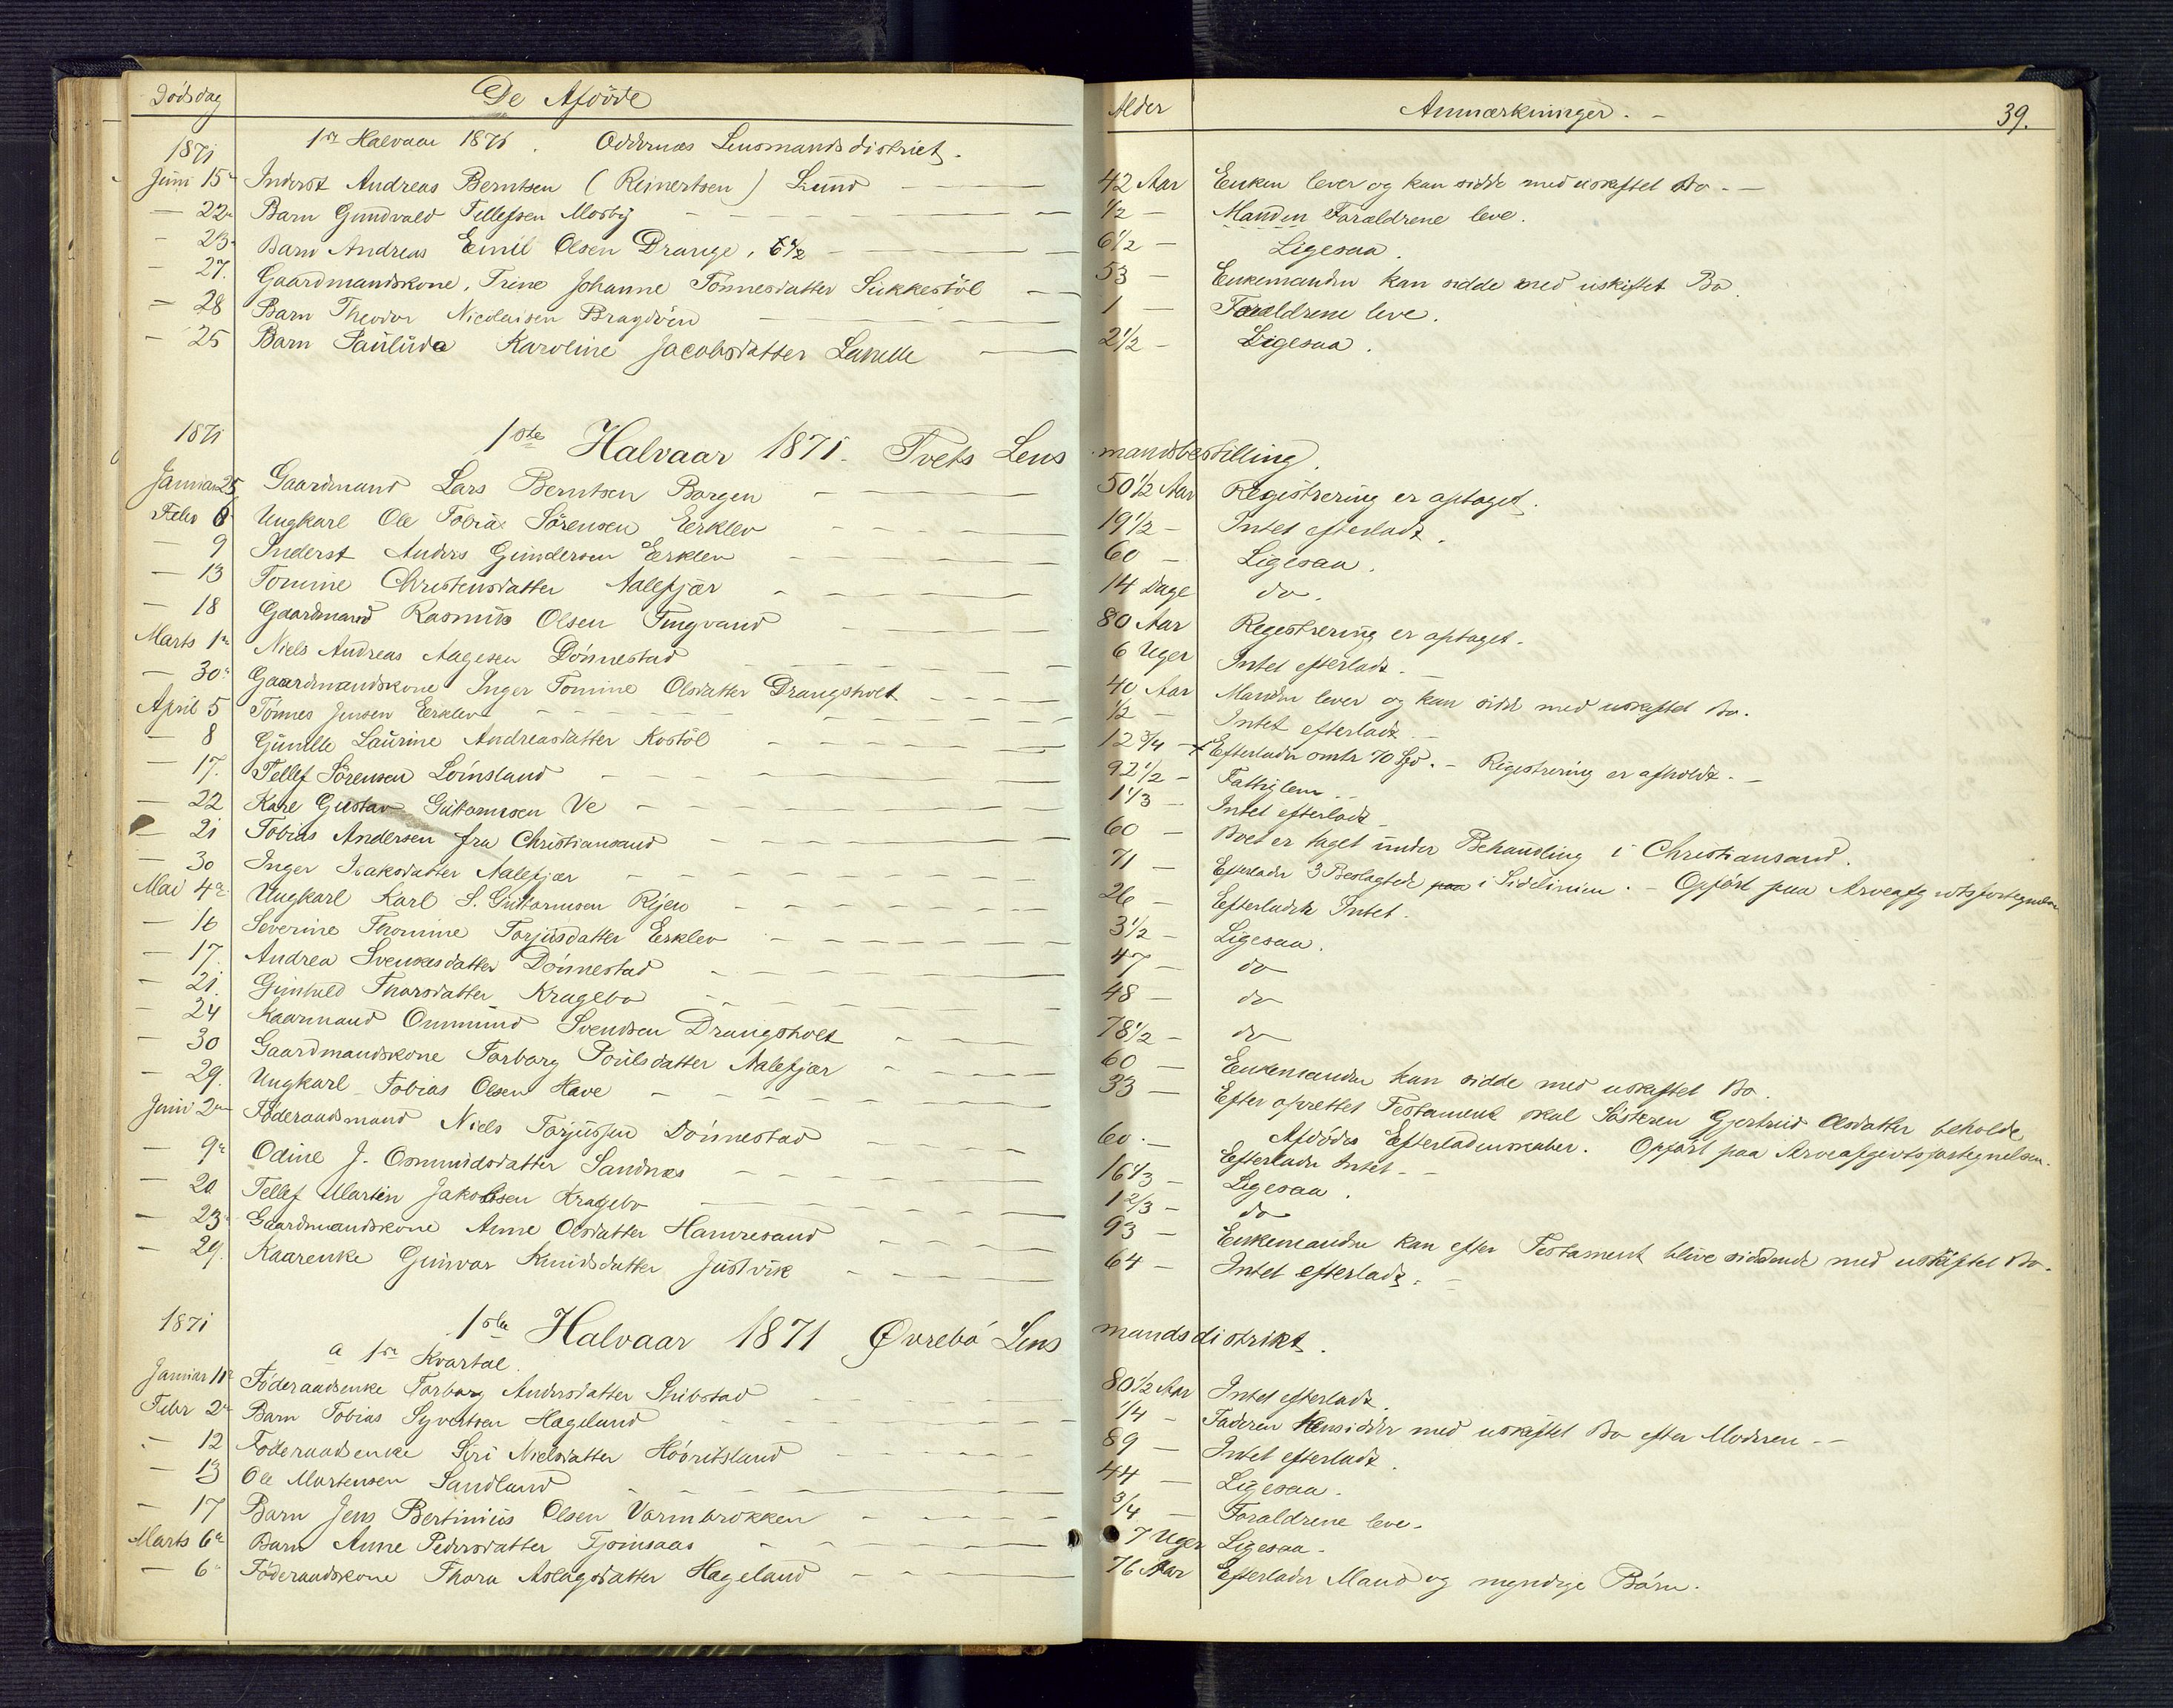 Dödsdag De Afdöde Alder Anmærkninger. - 39.
1871 1ste Halvaar 1871. Oddernæs Lensmandsdistrict.
Juni 15de Inderst Andreas Berntsen (Reinertsen) Lund 42 Aar Enken lever og kan sidde med uskiftet Bo. -
— 22de Barn Gundvald Tellefsen Mosby 1/2 — Manden Forældrene leve.
— 23. Barn Andreas Emil Olsen Drange, 6 1/2 6 1/2 — Ligesaa.
— 27. Gaardmandskone, Trine Johanne Tönnesdatter Sukkestöl 53 — Enkemanden kan sidde med uskiftet Bo.
— 28 Barn Theodor Nicolaisen Bragdöen 1 — Forældrene leve.
— 25 Barn Paulida Karoline Jacobsdatter 2 1/2 — Ligesaa.
1871 1ste Halvaar 1871. Tvets Lensmandsbestilling.
Januar 25 Gaardmand Lars Berntsen Borgen 50 1/2 Aar Registrering er optaget.
Febr 6 Ungkarl Ole Tobias Sörensen Eerklev 19 1/2 — Intet efterladt.
— 9 Inderst Anders Gundersen Eerklev 60 — Ligesaa.
— 13 Tomine Christensdatter Aalefjær 14 Dage do.
— 18 Gaardmand Rasmus Olsen Tingvand 80 Aar Registrering er optaget.
Marts 1ste Niels Andreas Aagesen Dönnestad 6 Uger Intet efterladt. -
— 30te Gaardmandskone Inger Tomine Olsdatter Drangsholt 40 Aar Manden lever og kan sidde med uskiftet Bo.
April 5 Tönnes Jensen Eerklev 1/2 — Intet efterladt -
— 8 Gunille Laurine Andreasdatter Kostöl 12 3/4 — Efterlader omtr 70 Spd. - Registrering er afholdt. -
— 17. Tellef Sörensen Loinsland 92 1/2 — Fattiglem. -
— 22 Karl Gustav Guttormsen Ve 1 1/3 — Intet efterladt
— 21 Tobias Andersen fra Christiansand 60 — Boet er taget under Behandling i Christiansand.
— 30 Inger Isaksdatter Aalefjær 71 — Efterlader 3 Beslægtede paa i Sidelinien. - Opfört paa Arveafgiftsfortegnelsen
Mai 4de Ungkarl Karl S. Guttormsen Rijen 26 — Efterladt Intet.
— 16 Severine Thomine Torjusdatter Eerklev 3 1/2 — Ligesaa.
— 17. Andrea Svensdatter Dönnestad 47 — do
— 21. Gunhild Thorsdatter Kragebo 48 — do
— 24 Kaarmand Ommund Svendsen Drangsholt 78 1/2 — do
— 30 Gaardmandskone Torborg Poulsdatter Aalefjær 60 — Enkemanden kan sidde med uskiftet Bo.
— 29. Ungkarl Tobias Olsen Have 33 — Efter oprettet Testament skal Söstren Gjertrud Olsdatter beholde
Afdödes Efterladenskaber. Opfört paa Arveafgiftsfortegnelsen.
Juni 2den Föderaadsmand Niels Torjussen Dönnestad 60. — Efterladt Intet. -
— 9de Odine J. Osmundsdatter Sandnæs 16 1/3 — Ligesaa.
— 20 Tellef Martin Jakobsen Kragebo 1 2/3 — do
— 23de Gaardmandskone Anne Olsdatter Hamresand 93 — Enkemanden kan efter Testament blive siddende med uskiftet Bo.
— 29. Kaarenke Gunvor Knudsdatter Justvik 64 — Intet efterladt. -
1871 1ste Halvaar 1871 Övrebö Lensmandsdistrikt.
a 1ste Kvartal.
Januar 11te Föderaadsenke Torborg Andersdatter Stubstad 80 1/2 Aar Intet efterladt.
Febr 2den Barn Tobias Syvertsen Hageland 1/4 — Faderen Hensidder med uskiftet Bo efter Moderen. -
— 12 Föderaadsenke Siri Nielsdatter 89 — Intet efterladt.
— 13 Ole Mortensen Sandland 44 — Ligesaa.
— 17 Barn Jens Bertinius Olsen Varmbrokken 3/4 — Forældrene leve.
Marts 6te Barn Anne Pedersdatter Tjomsaas 7 Uger Ligesaa. -
— 6te Föderaadskone Thora Aslagsdatter Hageland 76 Aar Efterlader Mand og myndige Börn.